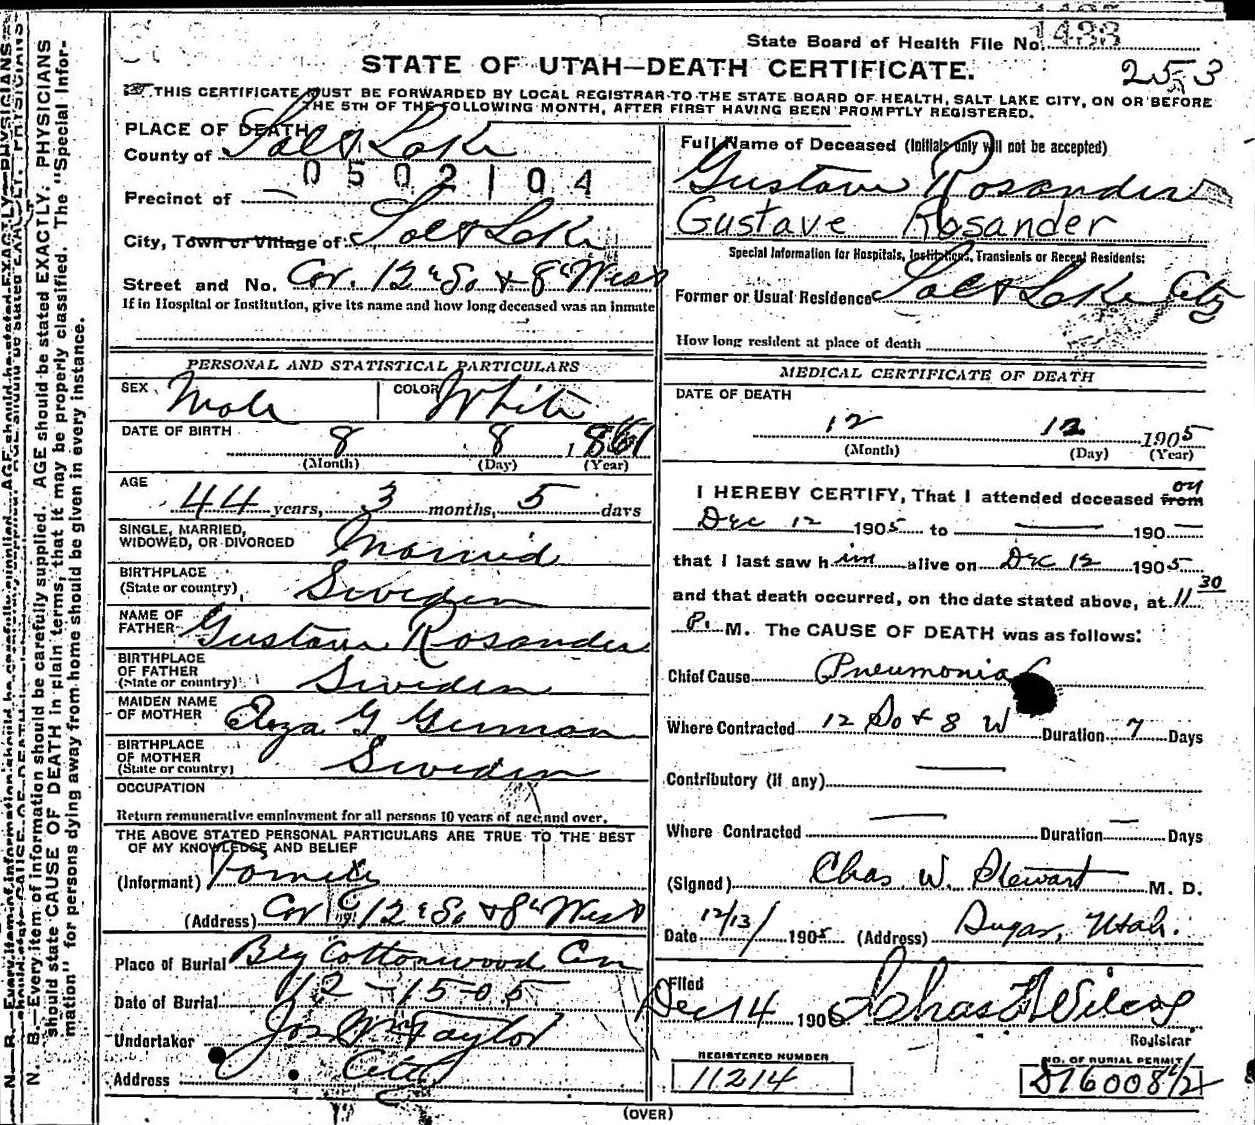 State Board of Health File No. 1433
STATE OF UTAH—DEATH CERTIFICATE.
253
THIS CERTIFICATE MUST BE FORWARDED BY LOCAL REGISTRAR TO THE STATE BOARD OF HEALTH, SALT LAKE CITY, ON OR BEFORE
THE 5TH OF THE FOLLOWING MONTH, AFTER FIRST HAVING BEEN PROMPTLY REGISTERED.
N. B.—Every item of information should be carefully supplied. AGE should be stated EXACTLY. PHYSICIANS
should state CAUSE OF DEATH in plain terms, that it may be properly classified. The "Special Infor-
mation" for persons dying away from home should be given in every instance.
PLACE OF DEATH
County of Salt Lake
0502104
Precinct of —
City, Town or Village of: Salt Lake
Street and No. Cor. 12 So & 8 West
If in Hospital or Institution, give its name and how long deceased was an inmate
PERSONAL AND STATISTICAL PARTICULARS
SEX Male COLOR White
DATE OF BIRTH 8 8 1861
(Month) (Day) (Year)
AGE 44 years, 3 months, 5 days
SINGLE, MARRIED,
WIDOWED, OR DIVORCED Married
BIRTHPLACE
(State or country) Sweden
NAME OF
FATHER Gustave Rosander
BIRTHPLACE
OF FATHER
(State or country) Sweden
MAIDEN NAME
OF MOTHER G
BIRTHPLACE
OF MOTHER
(State or country) Sweden
OCCUPATION
Return remunerative employment for all persons 10 years of age and over.
THE ABOVE STATED PERSONAL PARTICULARS ARE TRUE TO THE BEST
OF MY KNOWLEDGE AND BELIEF
(Informant) Family
(Address) Cor 12 So & 8 West
Place of Burial Big Cottonwood Cem
Date of Burial 12-15-05
Undertaker Jos Wm Taylor
Address City
Full Name of Deceased (Initials only will not be accepted)
Gustave Rosander
Gustave Rosander
Special Information for Hospitals, Institutions, Transients or Recent Residents:
Former or Usual Residence Salt Lake City
How long resident at place of death
MEDICAL CERTIFICATE OF DEATH
DATE OF DEATH
12 12 1905
(Month) (Day) (Year)
I HEREBY CERTIFY, That I attended deceased from on
Dec 12 1905 to — 190—
that I last saw him alive on Dec 12 1905
and that death occurred, on the date stated above, at 11 30
P. M. The CAUSE OF DEATH was as follows:
Chief Cause Pneumonia
Where Contracted 12 So & 8 W Duration 7 Days
Contributory (if any) —
Where Contracted — Duration — Days
(Signed) Chas. W. Stewart M. D.
Date 12/13/ 1905 (Address) Sugar, Utah.
Filed
Dec 14 1905 Chas F Wilcox
Registrar
REGISTERED NUMBER
11214
NO. OF BURIAL PERMIT
(OVER)